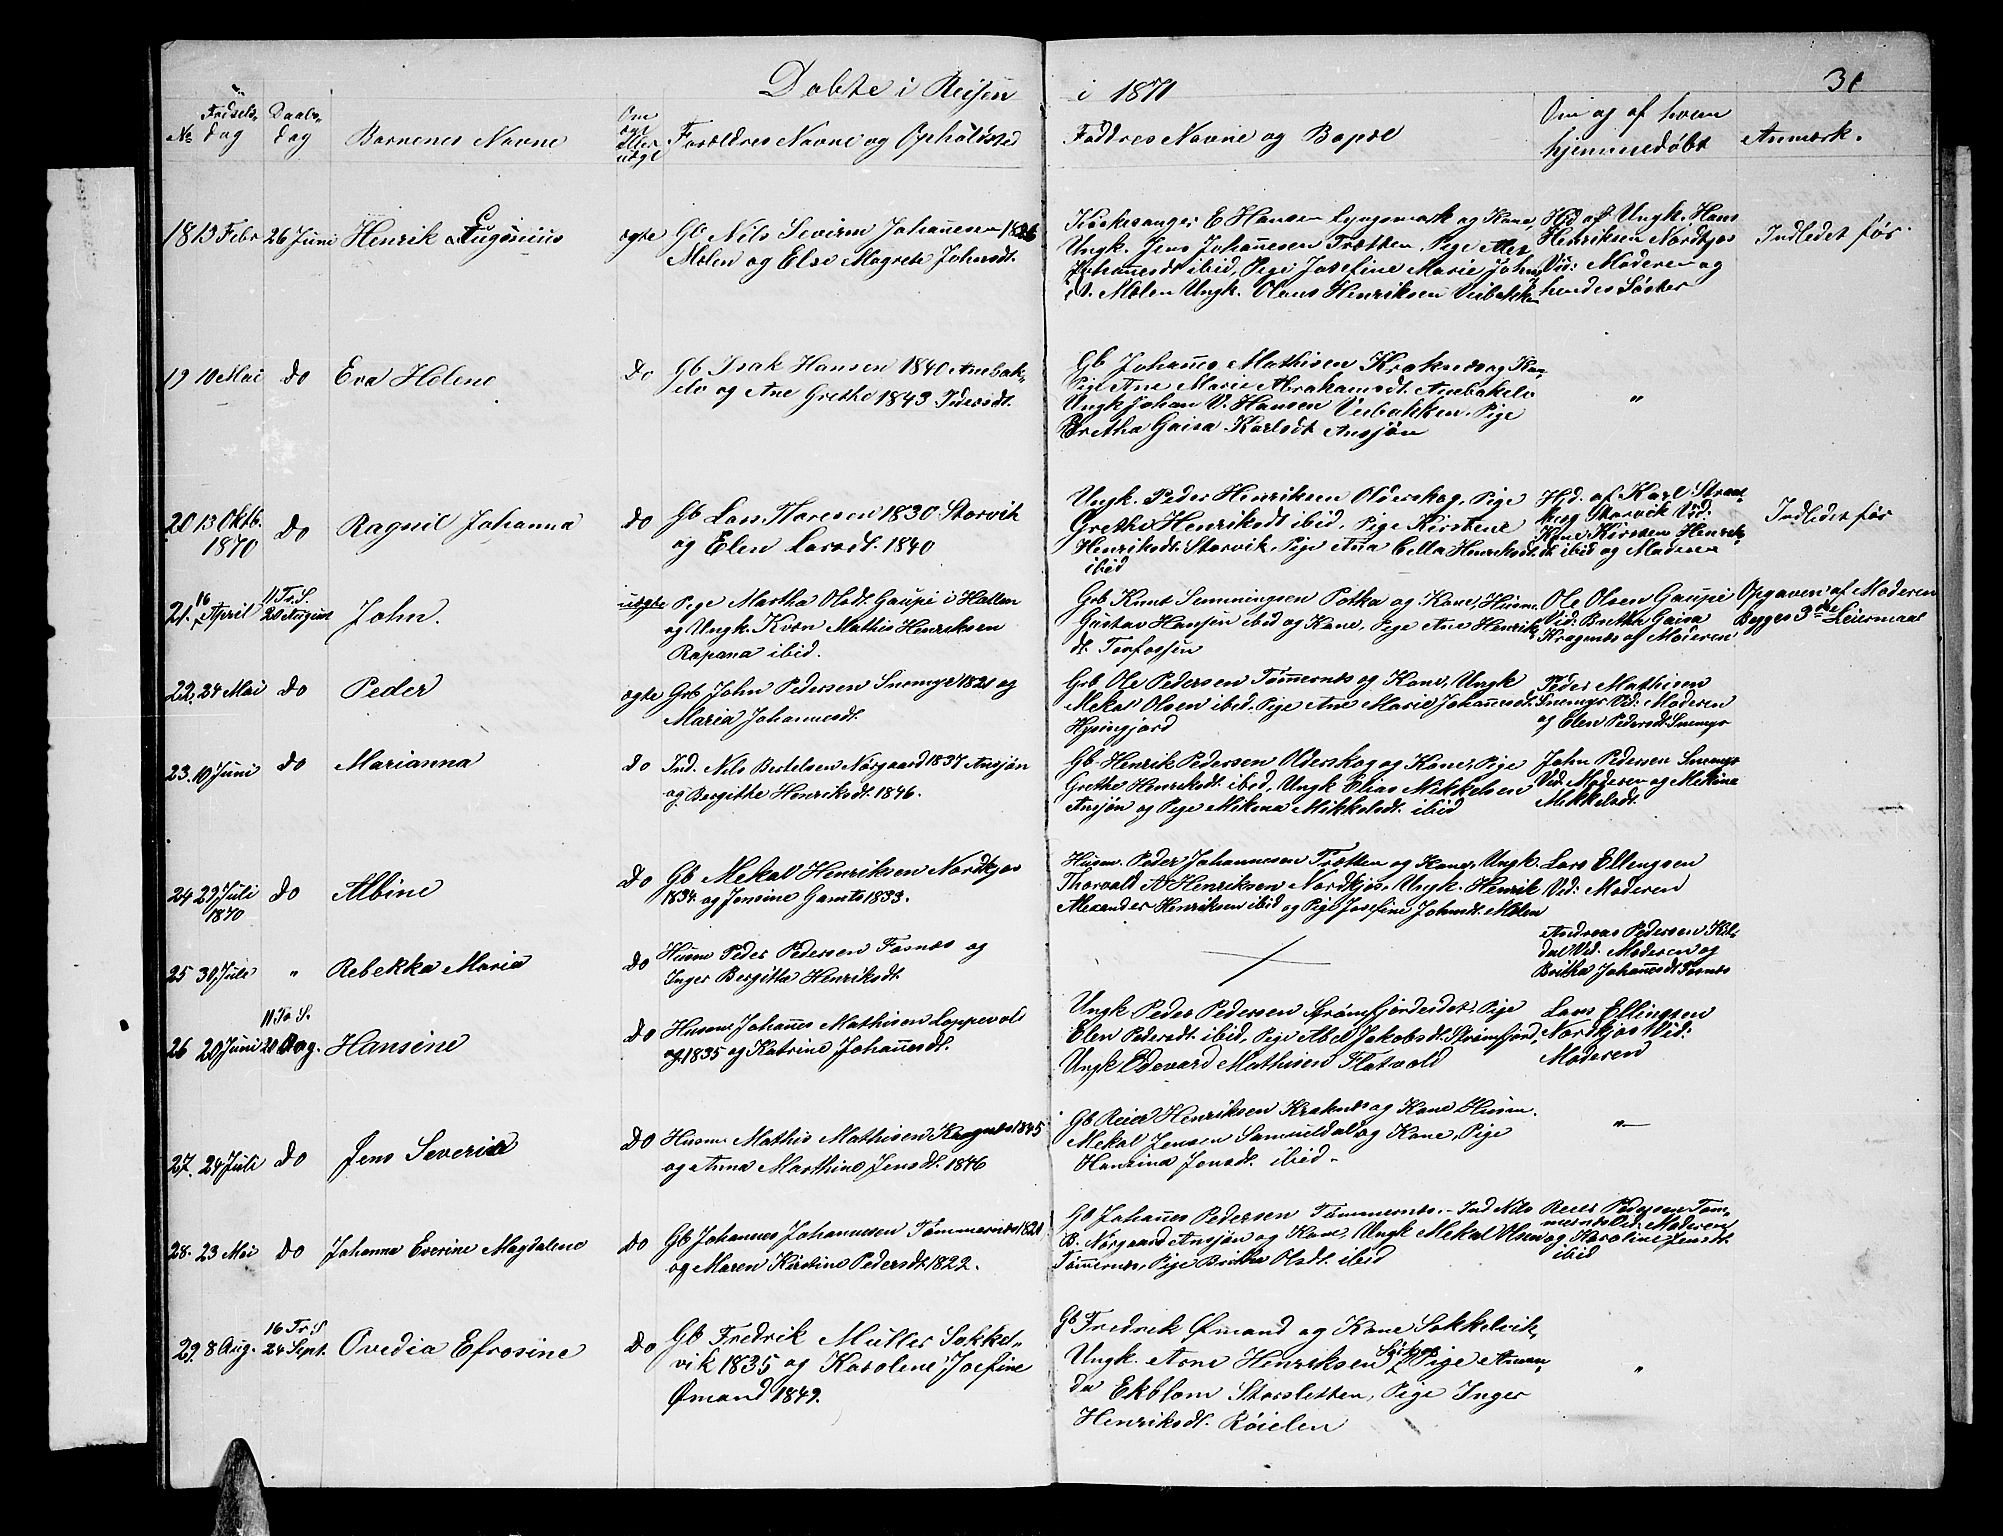 Døbte i Reisen i 1871
31
No
Fødsels-
dag
Daabs-
dag
Barnenes Navne
Om
ægte
eller
uægte
Forældres Navne og Opholdsted
Faddres Navne og Bopæl
Om og af hvem
hjemmedøbt
Anmærk.
18 13 Febr 26 Juni Henrik Eugenius ægte
Gb Nils Severin Johannesen 1826
Mælen og Else Magrete Johnsdt.
Kirkesanger E Hansen Lyngsmark og Kone,
Ungk. Jens Johannesen Trætten, Pige
Johannesdt ibid, Pige Josefine Marie John
dt. Mælen Ungk. Olaus Henriksen Veibakken
Hjd af Ungk. Hans
Henriksen Nordkjos
Vid: Moderen og
hendes Søster
Indledet før.
19 10 Mai do Eva Helene do
Gb Isak Hansen 1840
og Ane Grethe 1843 Pedersdt.
Gb Johannes Mathisen Kraknes og Kone,
Pige Ane Marie Abrahamsdt.
Ungk Johan V. Hansen Veibakken, Pige
Bretha Gaisa Karlsdt Ansjøn
"
20 13 Oktb. do Ragnil Johanna do
1870
Gb Lars Thoresen 1830 Storvik
og Elen Larsdt. 1840
Ungk. Peder Henriksen Olderskog, Pige
Grethe Henriksdt ibid, Pige Kirstene
Henriksdt. Storvik, Pige Ane Cella Henriksdt
ibid
Hjd. af Karl Strøm
berg Storvik Vid.
Kone Kirsten Henrik
dt ibid og Moderen
Indledet før
21. 16 April 11 Tr. S. 20 August John. uægte
Pige Martha Olsdt. Gaupi i Hallen
og Ungk. Kvæn Mathis Henriksen
Rapana ibid.
Grb Knut Semmingsen Potka og Kone, Husm.
Gustav Hansen ibid og Kone, Pige Ane Henrik
dt. Torfossen
Ole Olsen Gaupi
Vid: Bretha Gaisa
Kragnes og Moderen
Opgaven af Moderen
Begges 3die Leiermaal
22. 24 Mai do Peder ægte
Grb John Pedersen Snemyr 1821 og
Maria Johannesdt.
Grb Ole Pedersen Tømmernes og Kone, Ungk
Mekal Olsen ibid, Pige Ane Marie Johannesdt.
Hysingjord
Peder Mathisen
Snemyr Vid: Moderen
og Elen Pedersdt. Snemyr
23. 10 Juni do Marianna do
Ind. Nils Bertelsen Nørgaard 1837 Ansjøn
og Bergitte Henriksdt. 1846.
Gb Henrik Pedersen Olderskog og Kone, Pige
Grethe Henriksdt. ibid, Ungk Elias Mikkelsen
Ansjøn og Pige Mikena Mikkelsdt. ibid
John Pedersen Snemyr
Vid. Moderen og Mekina
Mekkelsdt.
24 29 Juli do Albine do
1870
Gb Mekal Henriksen Nordkjos
1834. og Jensine Gamts 1833.
Husm. Peder Johannesen Trætten og Kone, Ungk.
Thorvald A Henriksen Nordkjos, Ungk. Henrik
Alexander Henriksen ibid og Pige Josefine Johnsdt. Mælen
Lars Ellengsen
Vid: Moderen
25 30 Juli " Rebekka Maria do
Husm Peder Pedersen Fosnæs og
Inger Bergitta Henriksdt.
Andreas Pedersen Kil-
dal Vid. Moderen og
Britha Johannesdt. Fosnæs
26 20 Juni 11 Tr. S. 20 Aug. Hansine do
Husm Johannes Mathisen Loppevold
1835 og Katrine Johannesdt.
Ungk Peder Pedersen Strømfjordeidet, Pige
Elen Pedersdt. ibid, Pige Abel Jakobsdt. Strømfjord,
Ungk Edevard Mathisen Flatvold
Lars Ellingsen
Nordkjos Vid:
Moderen
27. 24 Juli do Jens Severin do
Husm Mathis Mathisen Kragnes 1845
og Anna Marthine Jensdt. 1846
Gb Reier Henriksen Kraknes og Kone Husm.
Mekal Jensen Samueldal og Kone, Pige
Hansina Jensdt. ibid.
"
28. 23 Mai do Johanna Everine Magdalene do
Gb Johannes Johannesen Tømmernes 1821
og Maren Kirstine Pedersdt. 1822.
Gb Johannes Pedersen Tømmernes. Ind Nils
B. Nørgaard Ansjøn og Kone, Ungk Mekal Olsen
Tømmernes, Pige Britha Olsdt. ibid
Reier Pedersen Tøm-
mernes Vid. Moderen
og Karoline Jensdt.
ibid
29. 8 Aug. 16 Tr. S 24 Sept. Ovedia Efrosine do
Gb Fredrik Müller Sokkel-
vik 1835 og Karolene Josefine
Ømand 1849.
Gb Fredrik Ømand og Kone Sokkelvik,
Ungk. Arne Henriksen Sørkjos, Pige Aman-
da Ekblom Storsletten, Pige Inger
Henriksdt. Røielen
"